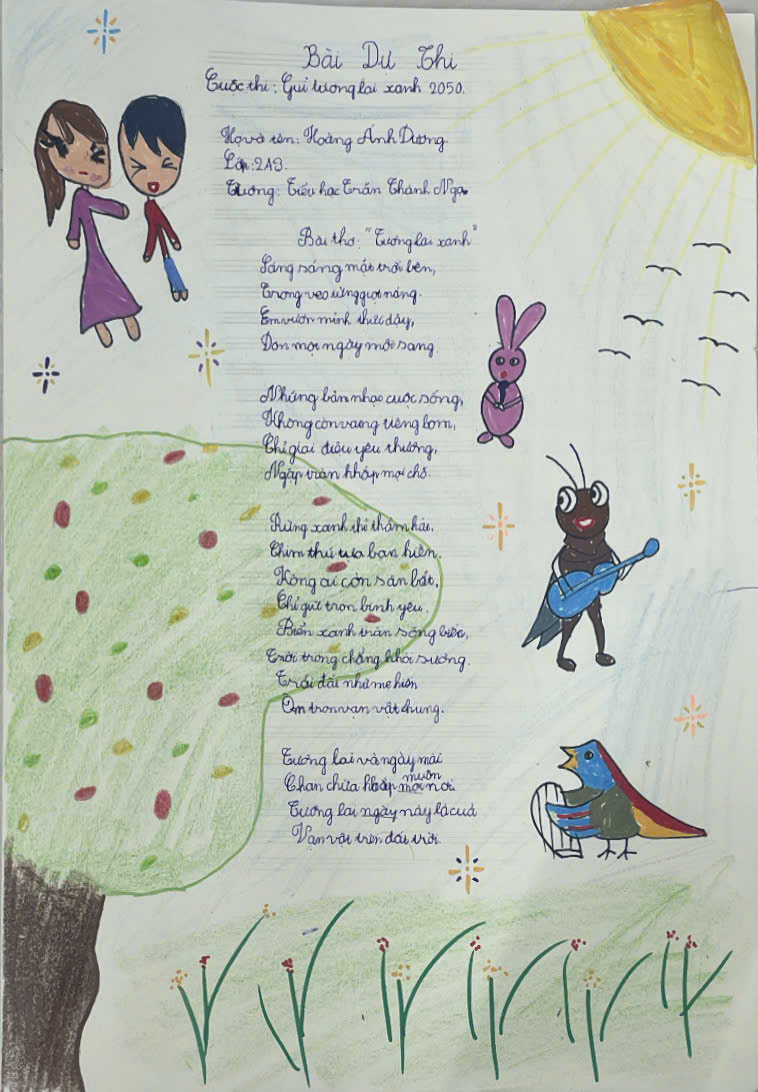 Bài Dự Thi
Cuộc thi: Gửi tương lai xanh 2050.
Họ và tên: Hoàng Ánh Dương.
Lớp: 2A3.
Trường: Tiểu học Trần Thành Ngọ.
Bài thơ: "Tương lai xanh"
Sáng sáng mặt trời lên,
Trong veo từng giọt nắng.
Em vươn mình thức dậy,
Đón mọi ngày mới sang.
Những bản nhạc cuộc sống,
Không còn vang tiếng bom,
Chỉ giai điệu yêu thương,
Ngập tràn khắp mọi chỗ.
Rừng xanh thì thầm hát,
Chim thú vui bạn hiền.
Kông ai còn săn bắt,
Chỉ giữ tròn bình yêu.
Biển xanh tràn sóng biếc,
Trời trong chẳng khói sương.
Trái đất như mẹ hiền
Ôm tròn vạn vật chung.
Tương lai và ngày mai
Chan chứa khắp muôn nơi
Tương lai ngày này là của
Vạn vật trên đất trời.